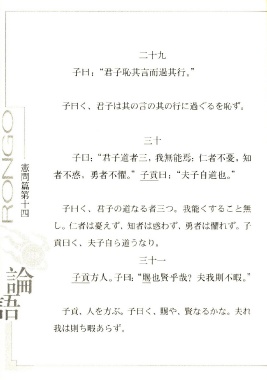 二十九
子曰：“君子恥其言而過其行。”
子曰く、君子は其の言の其の行に過ぐるを恥ず。
三十
子曰：“君子道者三，我無能焉：仁者不憂，知
者不惑，勇者不懼。”子貢曰：“夫子自道也。”
子曰く、君子の道なる者三つ。我能くすること無
し。仁者は憂えず、知者は惑わず、勇者は懼れず。子
貢曰く、夫子自ら道うなり。
三十一
子貢方人。子曰：“賜也賢乎哉？夫我則不暇。”
子貢、人を方ぶ。子曰く、賜や、賢なるかな。夫れ
我は則ち暇あらず。
RONGO
憲問篇第十四
論語